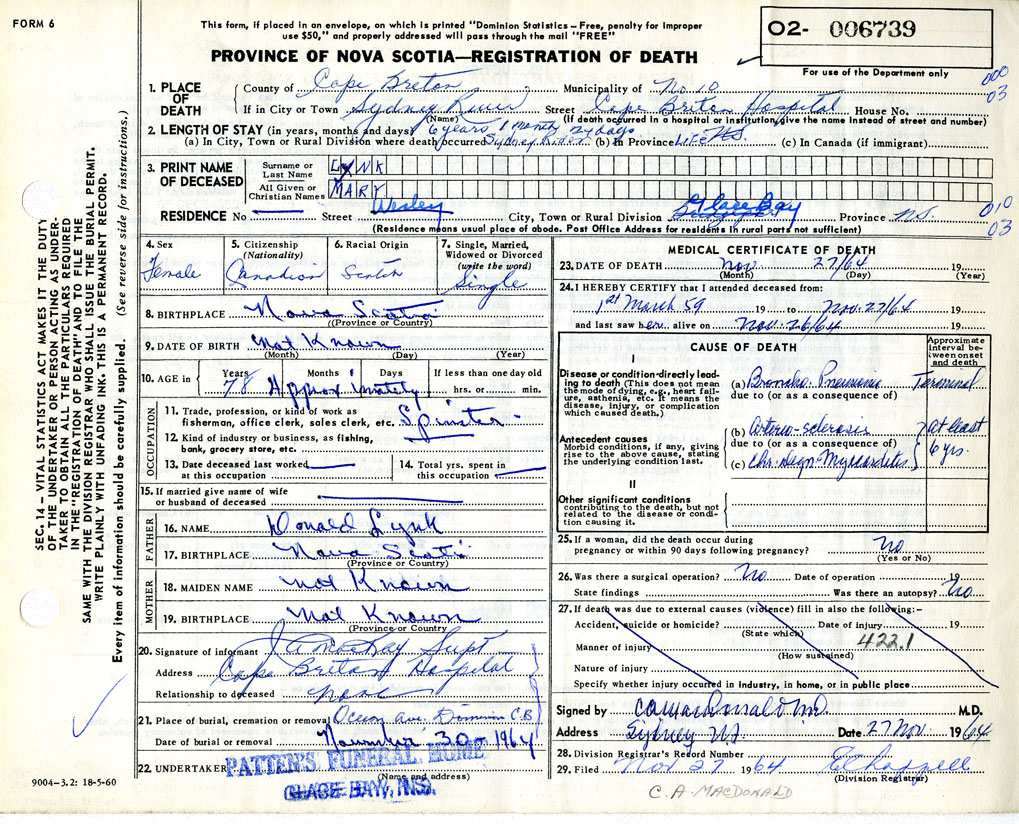 FORM 6
This form, if placed in an envelope, on which is printed "Dominion Statistics – Free, penalty for improper
use $50," and properly addressed will pass through the mail "FREE"
PROVINCE OF NOVA SCOTIA—REGISTRATION OF DEATH
O2- 006739
For use of the Department only
000
03
1. PLACE OF DEATH
County of Cape Breton Municipality of No 10
If in City or Town Sydney River Street Cape Breton Hospital House No.
(Name) (If death occurred in a hospital or institution, give the name instead of street and number)
2. LENGTH OF STAY (in years, months and days) 6 years 1 month 27 days
(a) In City, Town or Rural Division where death occurred Sydney River (b) In Province LIFE N.S. (c) In Canada (if immigrant)
3. PRINT NAME OF DECEASED
Surname or Last Name LYNK
All Given or Christian Names MARY
RESIDENCE No Street Wesley City, Town or Rural Division Glace Bay Province N.S.
010
03
(Residence means usual place of abode. Post Office Address for residents in rural parts not sufficient)
4. Sex Female
5. Citizenship (Nationality) Canadian
6. Racial Origin Scotch
7. Single, Married, Widowed or Divorced (write the word) Single
8. BIRTHPLACE Nova Scotia
(Province or Country)
9. DATE OF BIRTH Not Known
(Month) (Day) (Year)
10. AGE in Years 78 Months Days Approximately If less than one day old hrs. or min.
OCCUPATION
11. Trade, profession, or kind of work as
fisherman, office clerk, sales clerk, etc. Spinster
12. Kind of industry or business, as fishing,
bank, grocery store, etc.
13. Date deceased last worked at this occupation
14. Total yrs. spent in this occupation
15. If married give name of wife
or husband of deceased
FATHER
16. NAME Donald Lynk
17. BIRTHPLACE Nova Scotia
(Province or Country)
MOTHER
18. MAIDEN NAME not Known
19. BIRTHPLACE Not Known
(Province or Country)
20. Signature of informant J A MacKay Supt
Address Cape Breton Hospital
Relationship to deceased none
21. Place of burial, cremation or removal Ocean Ave. Dominion C.B.
Date of burial or removal November 30 1964
22. UNDERTAKER PATTEN'S FUNERAL HOME
(Name and address)
GLACE BAY, N.S.
MEDICAL CERTIFICATE OF DEATH
23. DATE OF DEATH Nov. 27/64 19
(Month) (Day) (Year)
24. I HEREBY CERTIFY that I attended deceased from:
1st March 59 19 to Nov. 27/64 19
and last saw her alive on Nov. 26/64 19
CAUSE OF DEATH
Approximate interval between onset and death
I
Disease or condition directly leading to death (This does not mean the mode of dying, e.g., heart failure, asthenia, etc. It means the disease, injury, or complication which caused death.)
(a) Broncho. Pneumonia Terminal
due to (or as a consequence of)
Antecedent causes
Morbid conditions, if any, giving rise to the above cause, stating the underlying condition last.
(b) Arterio-sclerosis
due to (or as a consequence of)
(c) Chr. Degn-Myocarditis
at least
6 yrs.
II
Other significant conditions
contributing to the death, but not related to the disease or condition causing it.
25. If a woman, did the death occur during
pregnancy or within 90 days following pregnancy? No
(Yes or No)
26. Was there a surgical operation? No Date of operation 19
State findings Was there an autopsy? No
27. If death was due to external causes (violence) fill in also the following:–
Accident, suicide or homicide? Date of injury 19
(State which)
Manner of injury 422.1
(How sustained)
Nature of injury
Specify whether injury occurred in industry, in home, or in public place
Signed by C A MacDonald MD. M.D.
Address Sydney N.S. Date 27 Nov. 1964
28. Division Registrar's Record Number
29. Filed Nov 27 1964 E Chappell
(Division Registrar)
C. A. MACDONALD
9004–3.2: 18-5-60
SEC. 14 – VITAL STATISTICS ACT MAKES IT THE DUTY
OF THE UNDERTAKER OR PERSON ACTING AS UNDER-
TAKER TO OBTAIN ALL THE PARTICULARS REQUIRED
IN THE "REGISTRATION OF DEATH" AND TO FILE THE
SAME WITH THE DIVISION REGISTRAR WHO SHALL ISSUE THE BURIAL PERMIT.
WRITE PLAINLY WITH UNFADING INK. THIS IS A PERMANENT RECORD.
Every item of information should be carefully supplied. (See reverse side for instructions.)